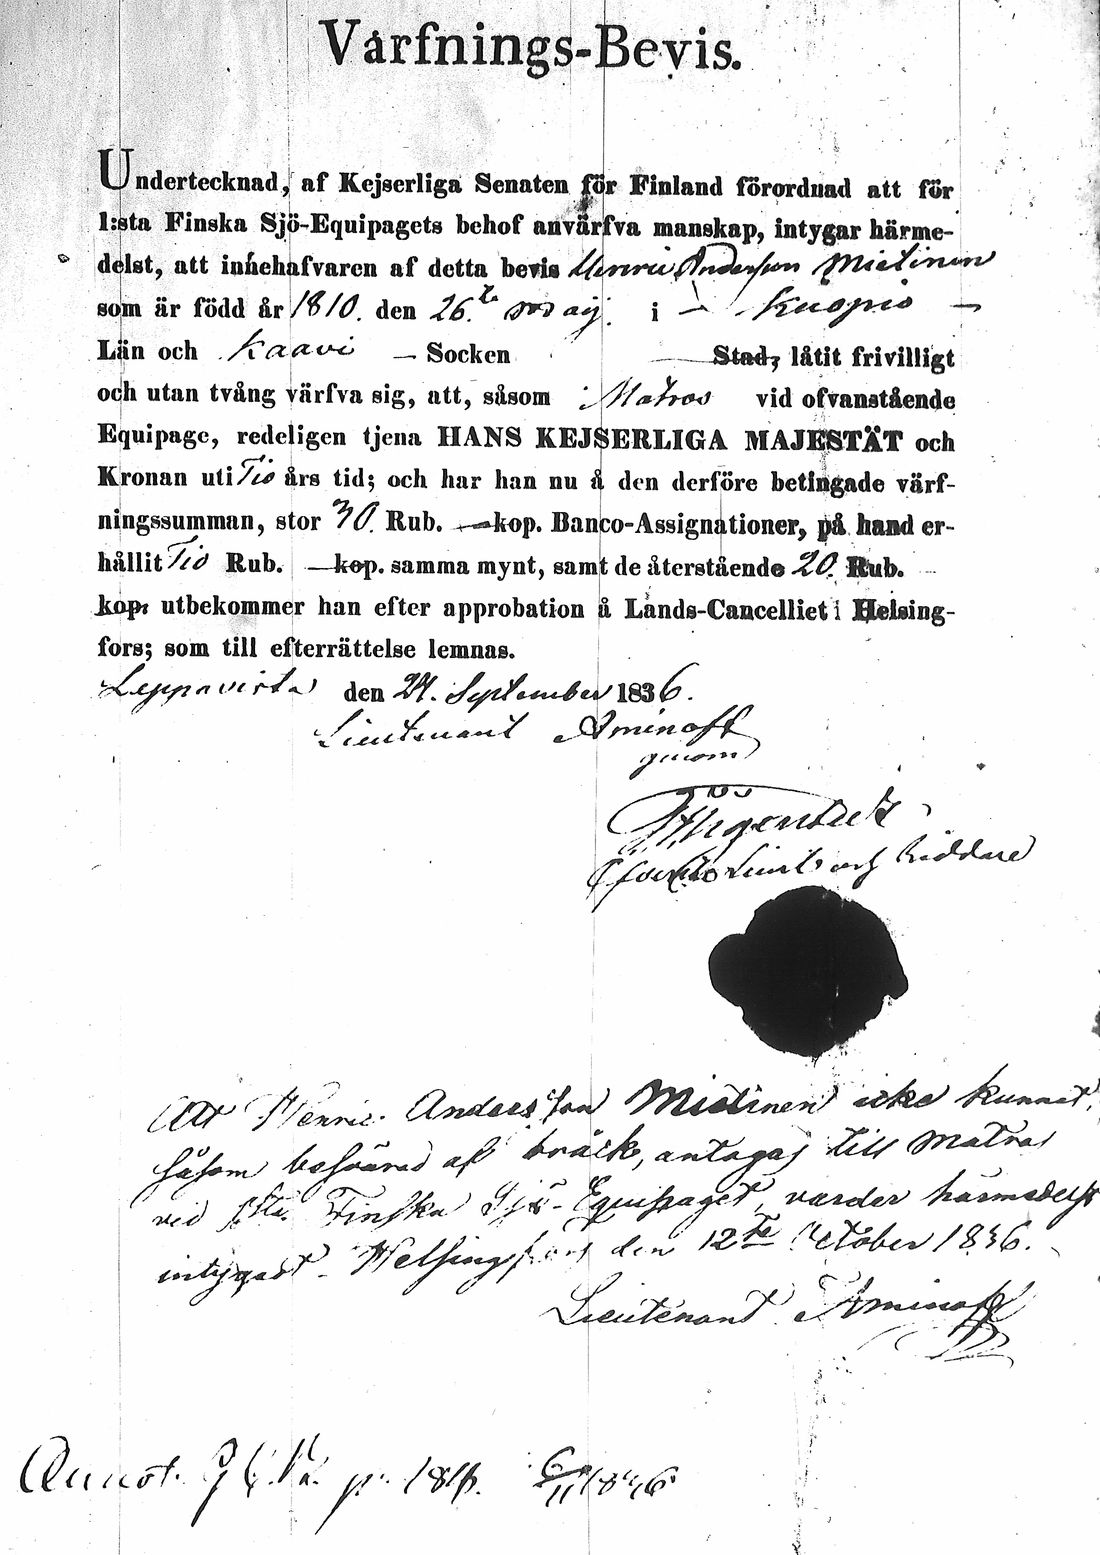 Värfnings-Bevis.
Undertecknad, af Kejserliga Senaten för Finland förordnad att för
1:sta Finska Sjö-Equipagets behof anvärfva manskap, intygar härme-
delst, att innehafvaren af detta bevis Henric Andersson Mietinen
som är född år 1810. den 26.te maij. i — Kuopio —
Län och Kaavi — Socken — Stad, låtit frivilligt
och utan tvång värfva sig, att, såsom Matros vid ofvanstående
Equipage, redeligen tjena HANS KEJSERLIGA MAJESTÄT och
Kronan uti Tio års tid; och har han nu å den derföre betingade värf-
ningssumman, stor 30. Rub. — kop. Banco-Assignationer, på hand er-
hållit Tio Rub. — kop. samma mynt, samt de återstående 20. Rub. —
kop. utbekommer han efter approbation å Lands-Cancelliet i Helsing-
fors; som till efterrättelse lemnas.
Leppävirta den 24. September 1836.
Lieutenant Aminoff
genom
Lieut och Riddare
Att Henric Andersson Mietinen icke kunnat,
såsom besvärad af bråck, antagas till Matros
vid 1sta Finska Sjö-Equipaget, varder härmedelst
intygadt. Helsingfors den 12te October 1836.
Lieutenant Aminoff
Annot. p.